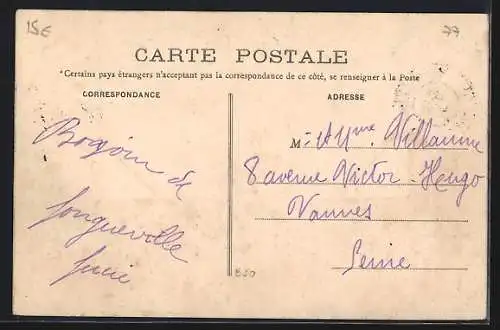 15€
77
CARTE POSTALE
*Certains pays étrangers n'acceptant pas la correspondance de ce côté, se renseigner à la Poste
CORRESPONDANCE
ADRESSE
de
Longueville
Lucie
M
Villaume
8 avenue Victor-Hugo
Vanves
Seine